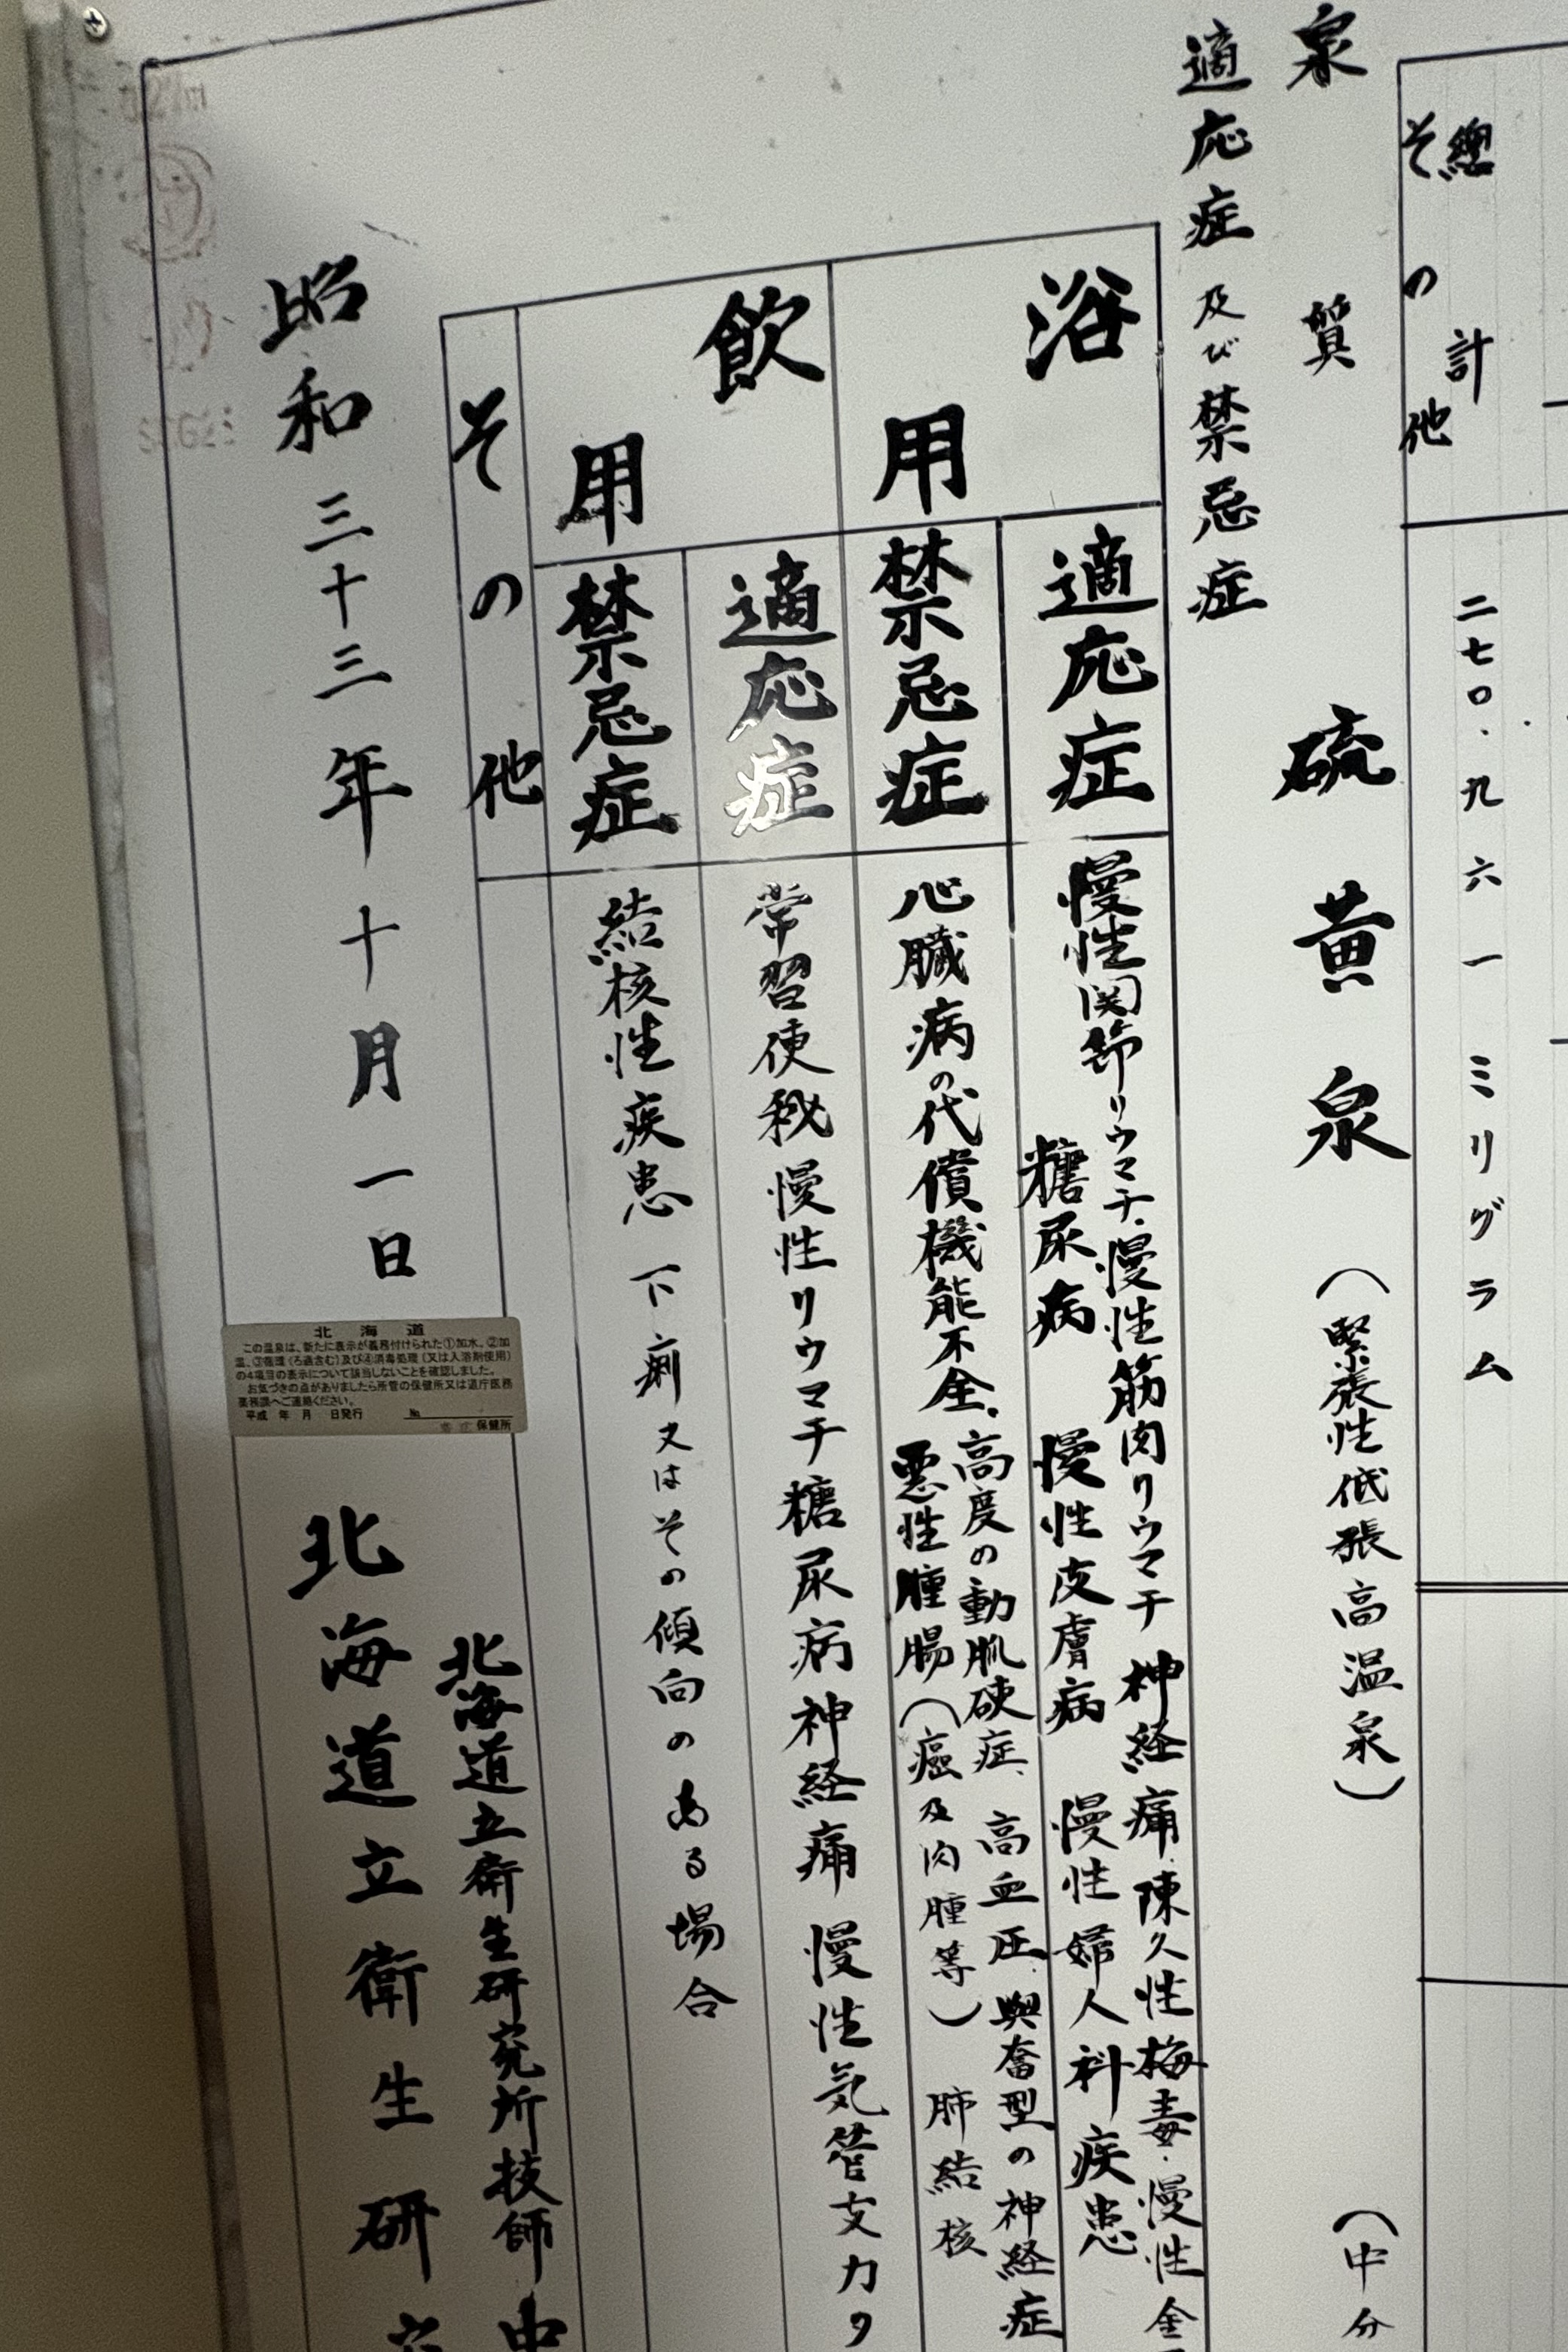 総計
二七〇.九六一ミリグラム
その他
泉質 硫黄泉 (緊張性低張高温泉) (中
適応症及び禁忌症
浴用
適応症
慢性関節リウマチ.慢性筋肉リウマチ 神経痛.陳久性梅毒.慢性金
糖尿病 慢性皮膚病 慢性婦人科疾患
禁忌症
心臓病の代償機能不全.高度の動脈硬症.高血圧.興奮型の神経症
悪性腫腸(癌及肉腫等) 肺結核
飲用
適応症
常習便秘 慢性リウマチ糖尿病神経痛 慢性気管支カタ
禁忌症
結核性疾患 下痢又はその傾向のある場合
その他
昭和三十三年十月一日
北海道立衛生研究所技師 中
北海道立衛生研究
北海道
この温泉は、新たに表示が義務付けられた①加水、②加
温、③循環(ろ過含む)及び④消毒処理(又は入浴剤使用)
の4項目の表示について該当しないことを確認しました。
お気づきの点がありましたら所管の保健所又は道庁医務
薬務課へご連絡ください。
平成 年 月 日発行 №
保健所